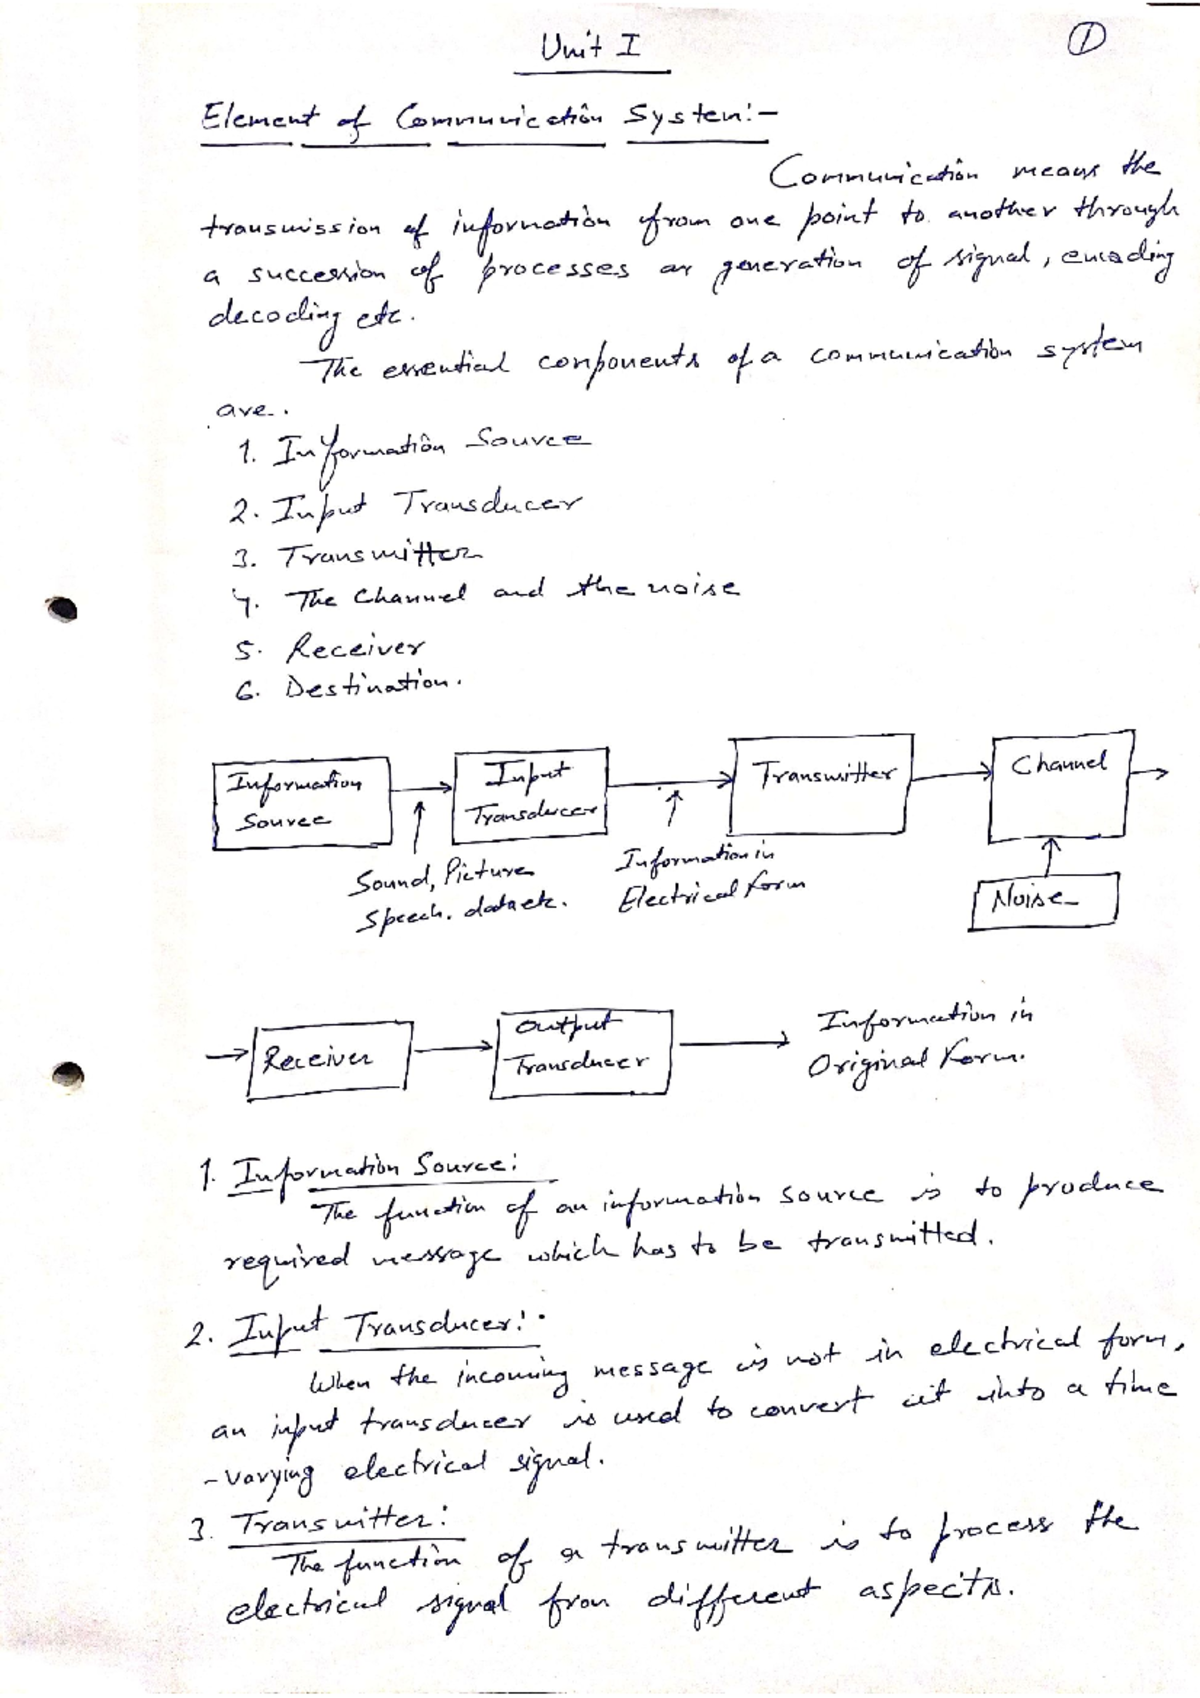 Unit I
1
Element of Communication System:-
Communication means the
transmission of information from one point to another through
a succession of processes as generation of signal, encoding
decoding etc.
The essential components of a communication system
are.
1. Information Source
2. Input Transducer
3. Transmitter
4. The Channel and the noise
5. Receiver
6. Destination.
Information
Source
Input
Transducer
Transmitter
Channel
Sound, Picture
Speech, data etc.
Information in
Electrical form
Noise
Receiver
Output
Transducer
Information in
Original Form.
1. Information Source:
The function of an information source is to produce
required message which has to be transmitted.
2. Input Transducer:-
When the incoming message is not in electrical form,
an input transducer is used to convert it into a time
-varying electrical signal.
3. Transmitter:
The function of a transmitter is to process the
electrical signal from different aspects.